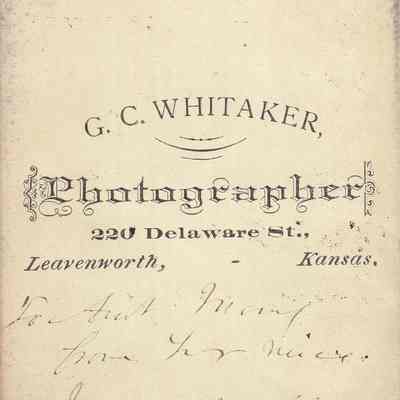 G. C. WHITAKER,
Photographer
220 Delaware St.,
Leavenworth, - Kansas.
To Aunt
from her niece.